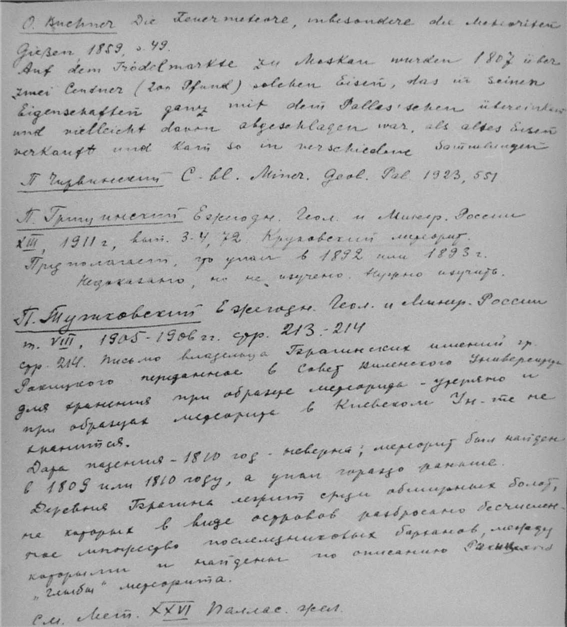 O. Buchner Die Feuermeteore, insbesondere die Meteoriten
Gießen 1859, s. 49.
Auf dem Trödelmarkte zu Moskau wurden 1807 über
zwei Centner (200 Pfund) solchen Eisen, das in seinen
Eigenschaften ganz mit dem Pallas'schen übereinkam
und vielleicht davon abgeschlagen war, als altes Eisen
verkauft und kam so in verschiedene Sammlungen
П. Чирвинский C. bl. Miner. Geol. Pal. 1923, 551
П. Грищинский Ежегодн. Геол. и Минер. России
XIII, 1911 г, вып. 3-4, 72. Круковский метеорит.
Предполагает, что упал в 1892 или 1893 г.
Недоказано, но не изучено. Нужно изучить.
П. Тутковский Ежегодн. Геол. и Минер. России
т. VIII, 1905-1906 гг. стр. 213-214
стр. 214. Письмо владельца Брагинских имений гр.
Ракицкого переданное в Совет Виленского Университета
для хранения при образце метеорита - утеряно и
при образцах метеорита в Киевском Ун-те не
хранится.
Дата падения - 1810 год - неверна; метеорит был найден
в 1809 или 1810 году, а упал гораздо раньше.
Деревня Брагина лежит среди обширных болот,
на которых в виде островов разбросано бесчислен-
ное множество последниковых барханов, между
которыми и найдены по описанию Ракицкого
"глыбы" метеорита.
См. Мет. XXVI Паллас. жел.